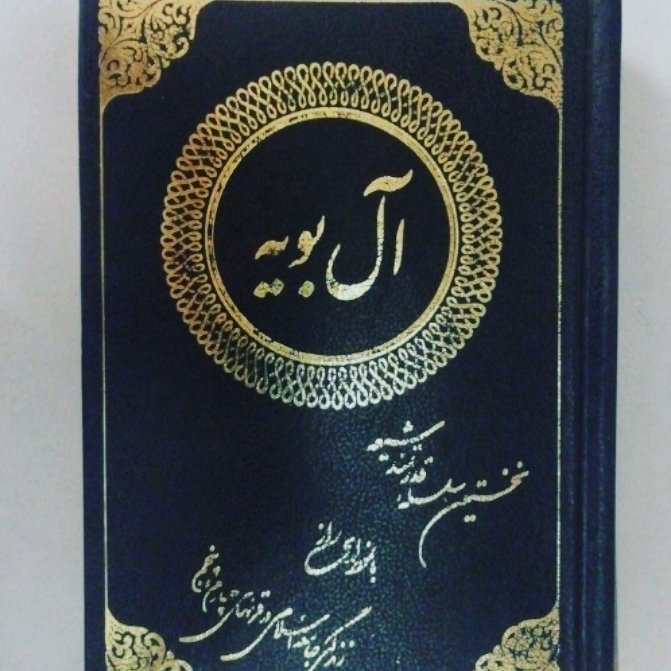 آل بویه
نخستین سلسله قدرتمند شیعه
با نموداری از
زندگی جامعه اسلامی در قرنهای چهارم و پنجم